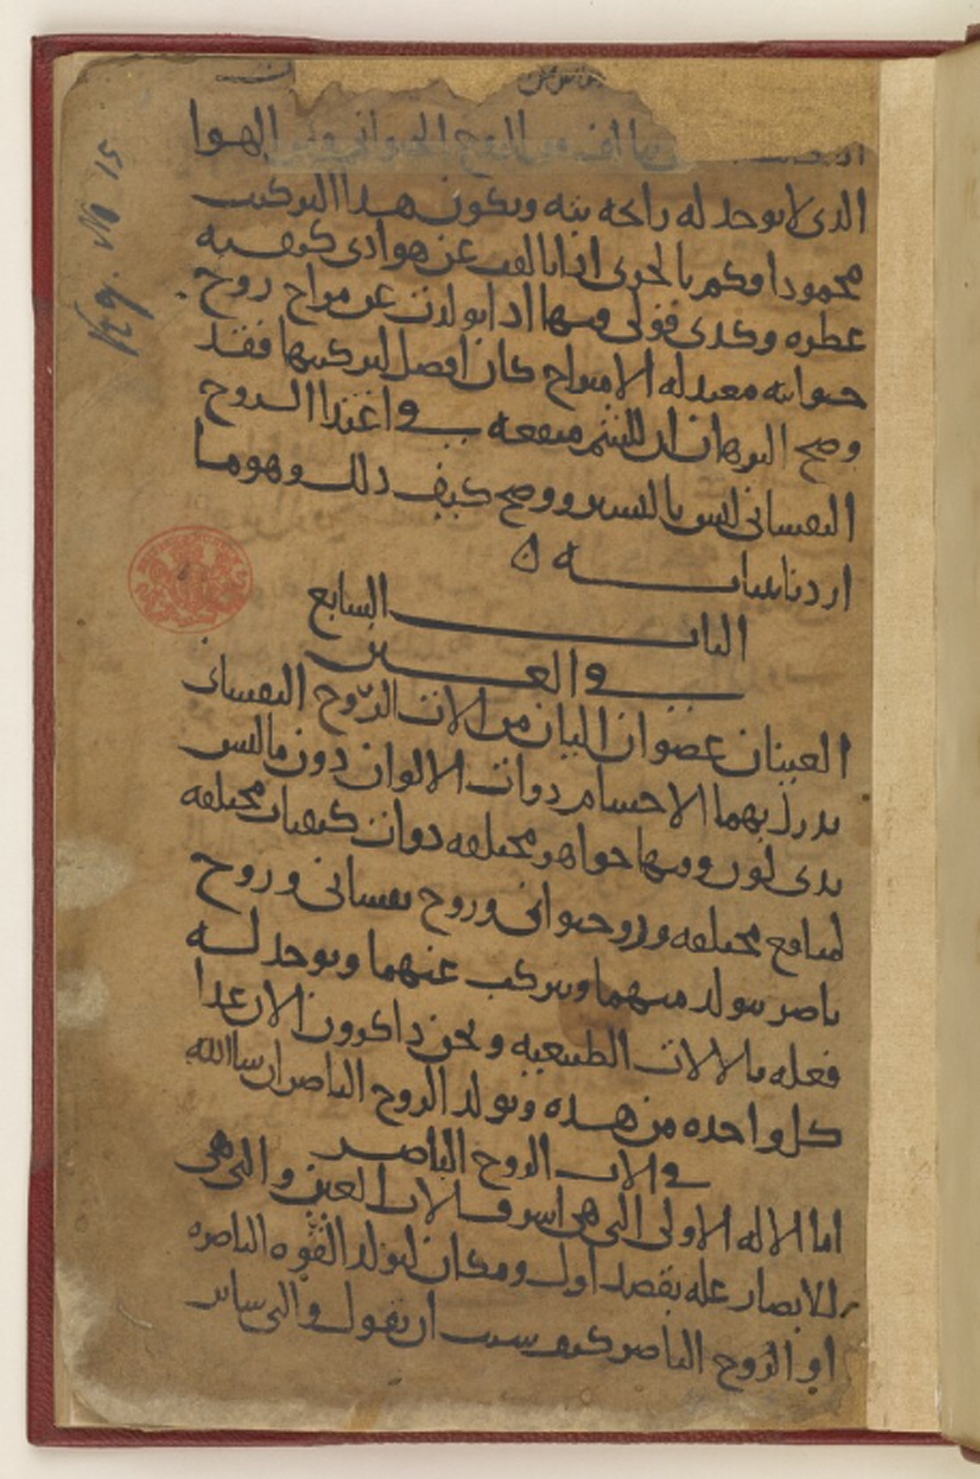 الروح الحيواني وبين الهوا
الذى لا يوجد له رائحه بته ويكون هذا التركيب
محمودا وكم بالحرى اذا تالف عن هوا ذى كيفيه
عطره وكذى قولى فيها اذا تولدت عن مزاج روح
حيوانيه معتدله الامتزاج كان افضل لتركيبها فقد
وضح البرهان ان للشم منفعه في اغتذا الروح
النفسانى ليس باليسير ووضح كيف ذلك وهو ما
اردنا بيانه ٥
الباب السابع
في العين
العينان عضوان اليان من الات الروح النفسانى
يدرك بهما الاجسام ذوات الالوان دون ما ليس
بذى لون وفيها جواهر مختلفه ذوات كيفيات مختلفه
لمنافع مختلفه وروح حيوانى وروح نفسانى وروح
باصر يتولد منهما ويتركب عنهما ويوجد له
فعله بالالات الطبيعيه ونحن ذاكرون الان غذا
كل واحده من هذه وتولد الروح الباصر ان شا الله
في الات الروح الباصر
اما الاله الاولى التى هى اشرف الات العين والتى هى
للابصار عله بقصد اول ومكان لتولد القوه الباصره
او الروح الباصر كيف شيت ان تقول والتى ساير